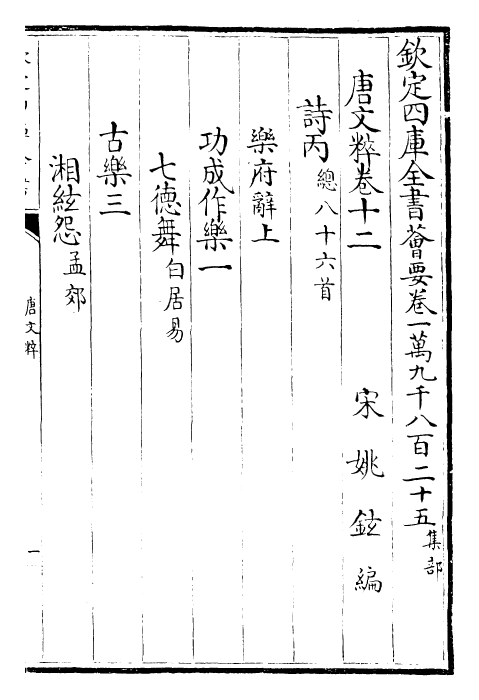 欽定四庫全書薈要卷一萬九千八百二十五集部
唐文粹卷十二 宋 姚 鉉 編
詩丙總八十六首
樂府辭上
功成作樂一
七德舞白居易
古樂三
湘絃怨孟郊
唐文粹
一